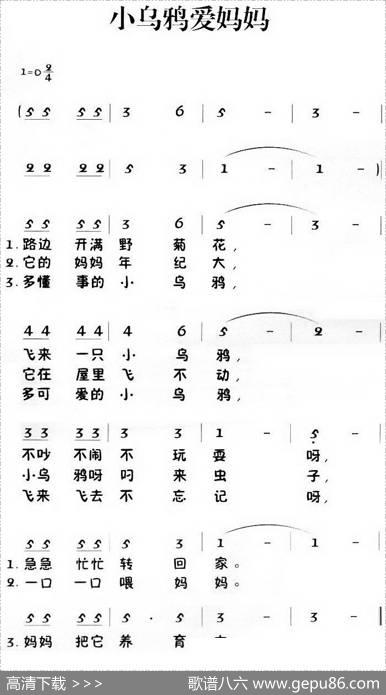 小乌鸦爱妈妈
1=D 2/4
(5 5 5 5 | 3 6 | 5 - | 3 - |
2 2 2 2 | 5 3 | 1 - | 1 - )|
5 5 5 5 | 3 6 | 5 - | 3 - |
1. 路边 开满 野 菊 花,
2. 它的 妈妈 年 纪 大,
3. 多懂 事的 小 乌 鸦,
4 4 4 4 | 4 6 | 5 - | 2 - |
飞来 一只 小 乌 鸦,
它在 屋里 飞 不 动,
多可 爱的 小 乌 鸦,
3 3 3 3 | 3 3 | 1 - | 5 - |
不吵 不闹 不 玩 耍 呀,
小乌 鸦呀 叼 来 虫 子,
飞来 飞去 不 忘 记 呀,
5 5 5 5 | 5 3 | 1 - | 1 - |
1. 急急 忙忙 转 回 家。
2. 一口 一口 喂 妈 妈。
5 5 5 5 | 5 · 5 | 3 - | 3 - |
3. 妈妈 把它 养 育
高清下载 >>> 歌谱八六 www.gepu86.com